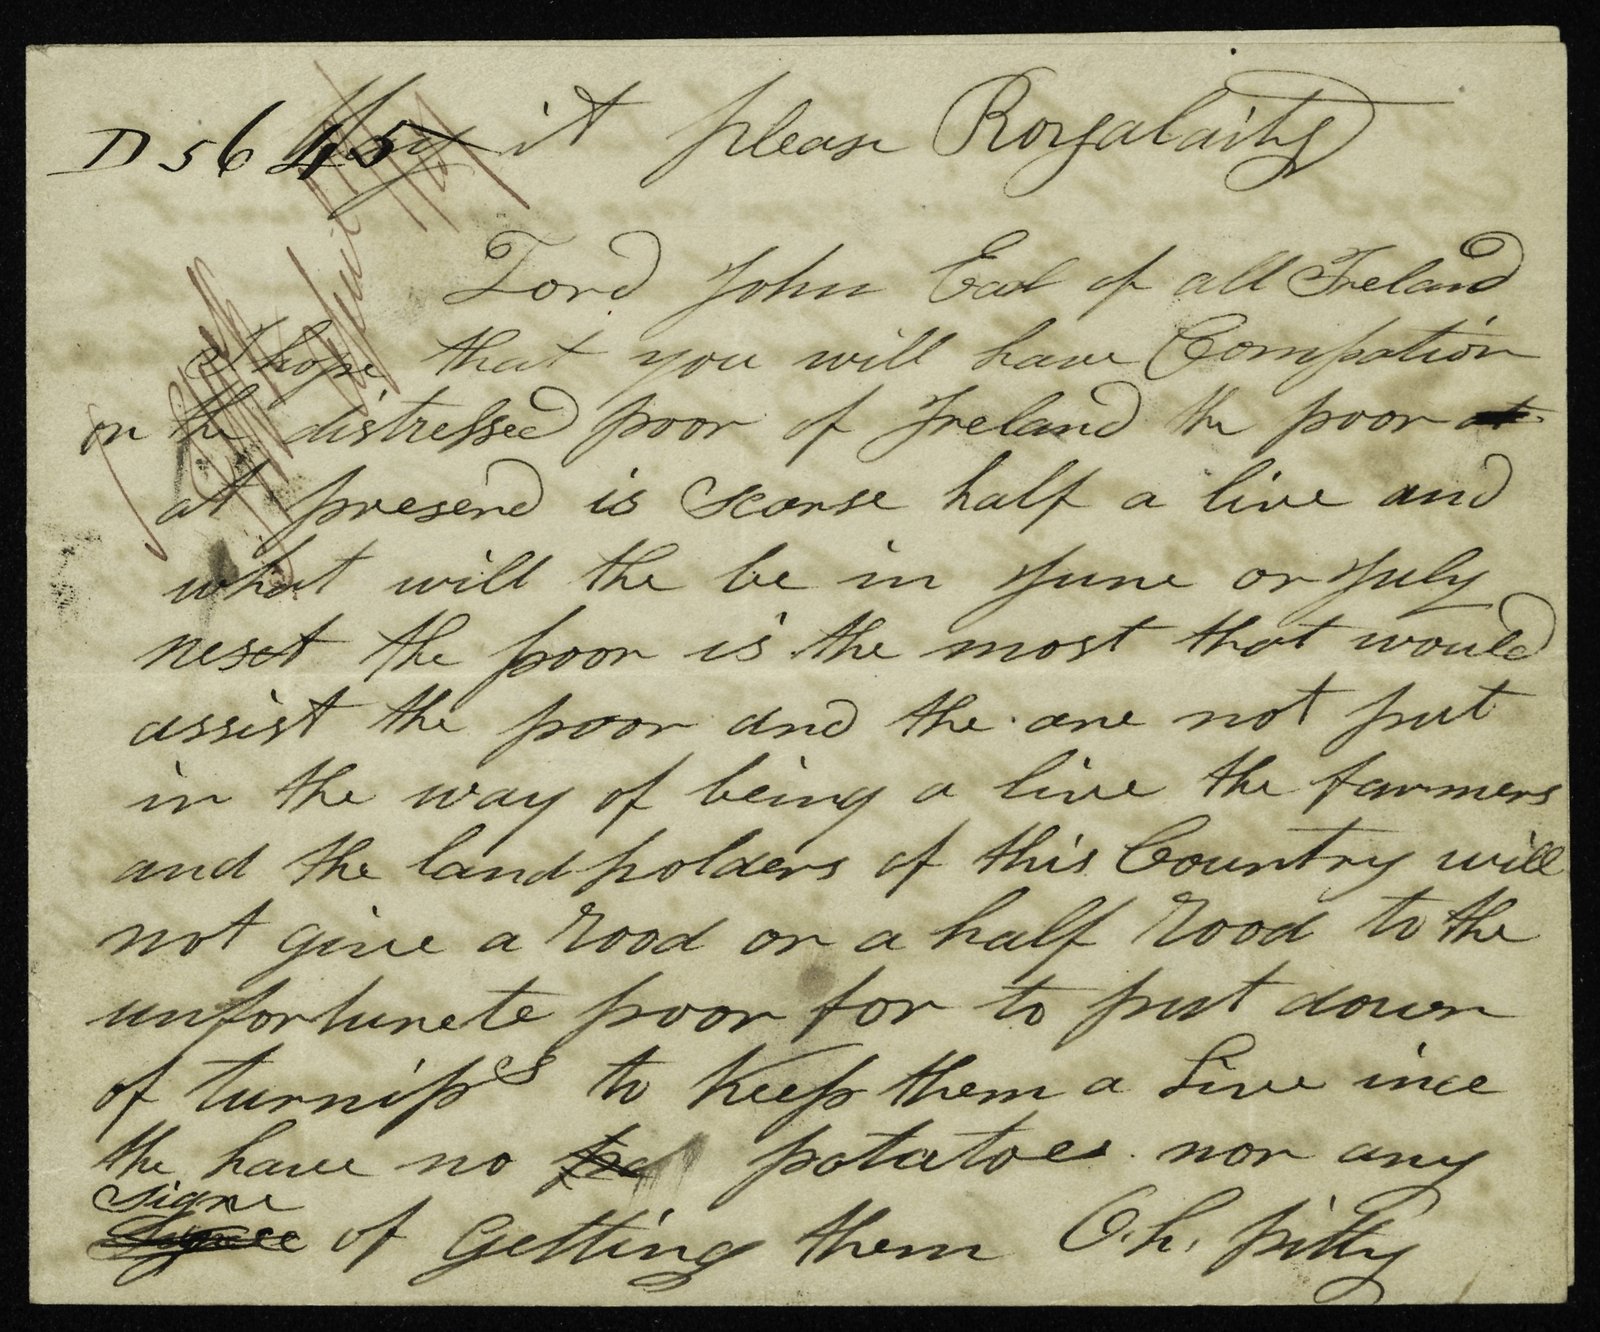 D 56 45
May it please Roygalaity
Lord John Eal of all Ireland
I hope that you will have Compation
on the distressed poor of Ireland the poor at
at presend is scarse half a live and
what will the be in June or July
nesct the poor is the most that would
assist the poor and the are not put
in the way of being a live the farmers
and the landholders of this Country will
not give a rood or a half rood to the
unfortunete poor for to put down
of turnips to Keep them a Live ince
the have no potatoes nor any
signe
of Getting them O.h. pitty